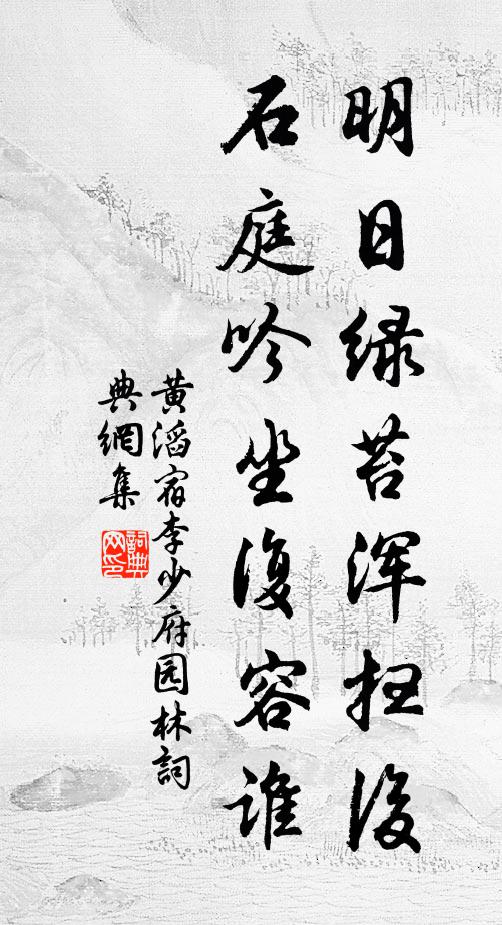 明日绿苔浑扫後
石庭吟坐復容谁
黄滔宿李少府园林詞
典網集
詞典
网印